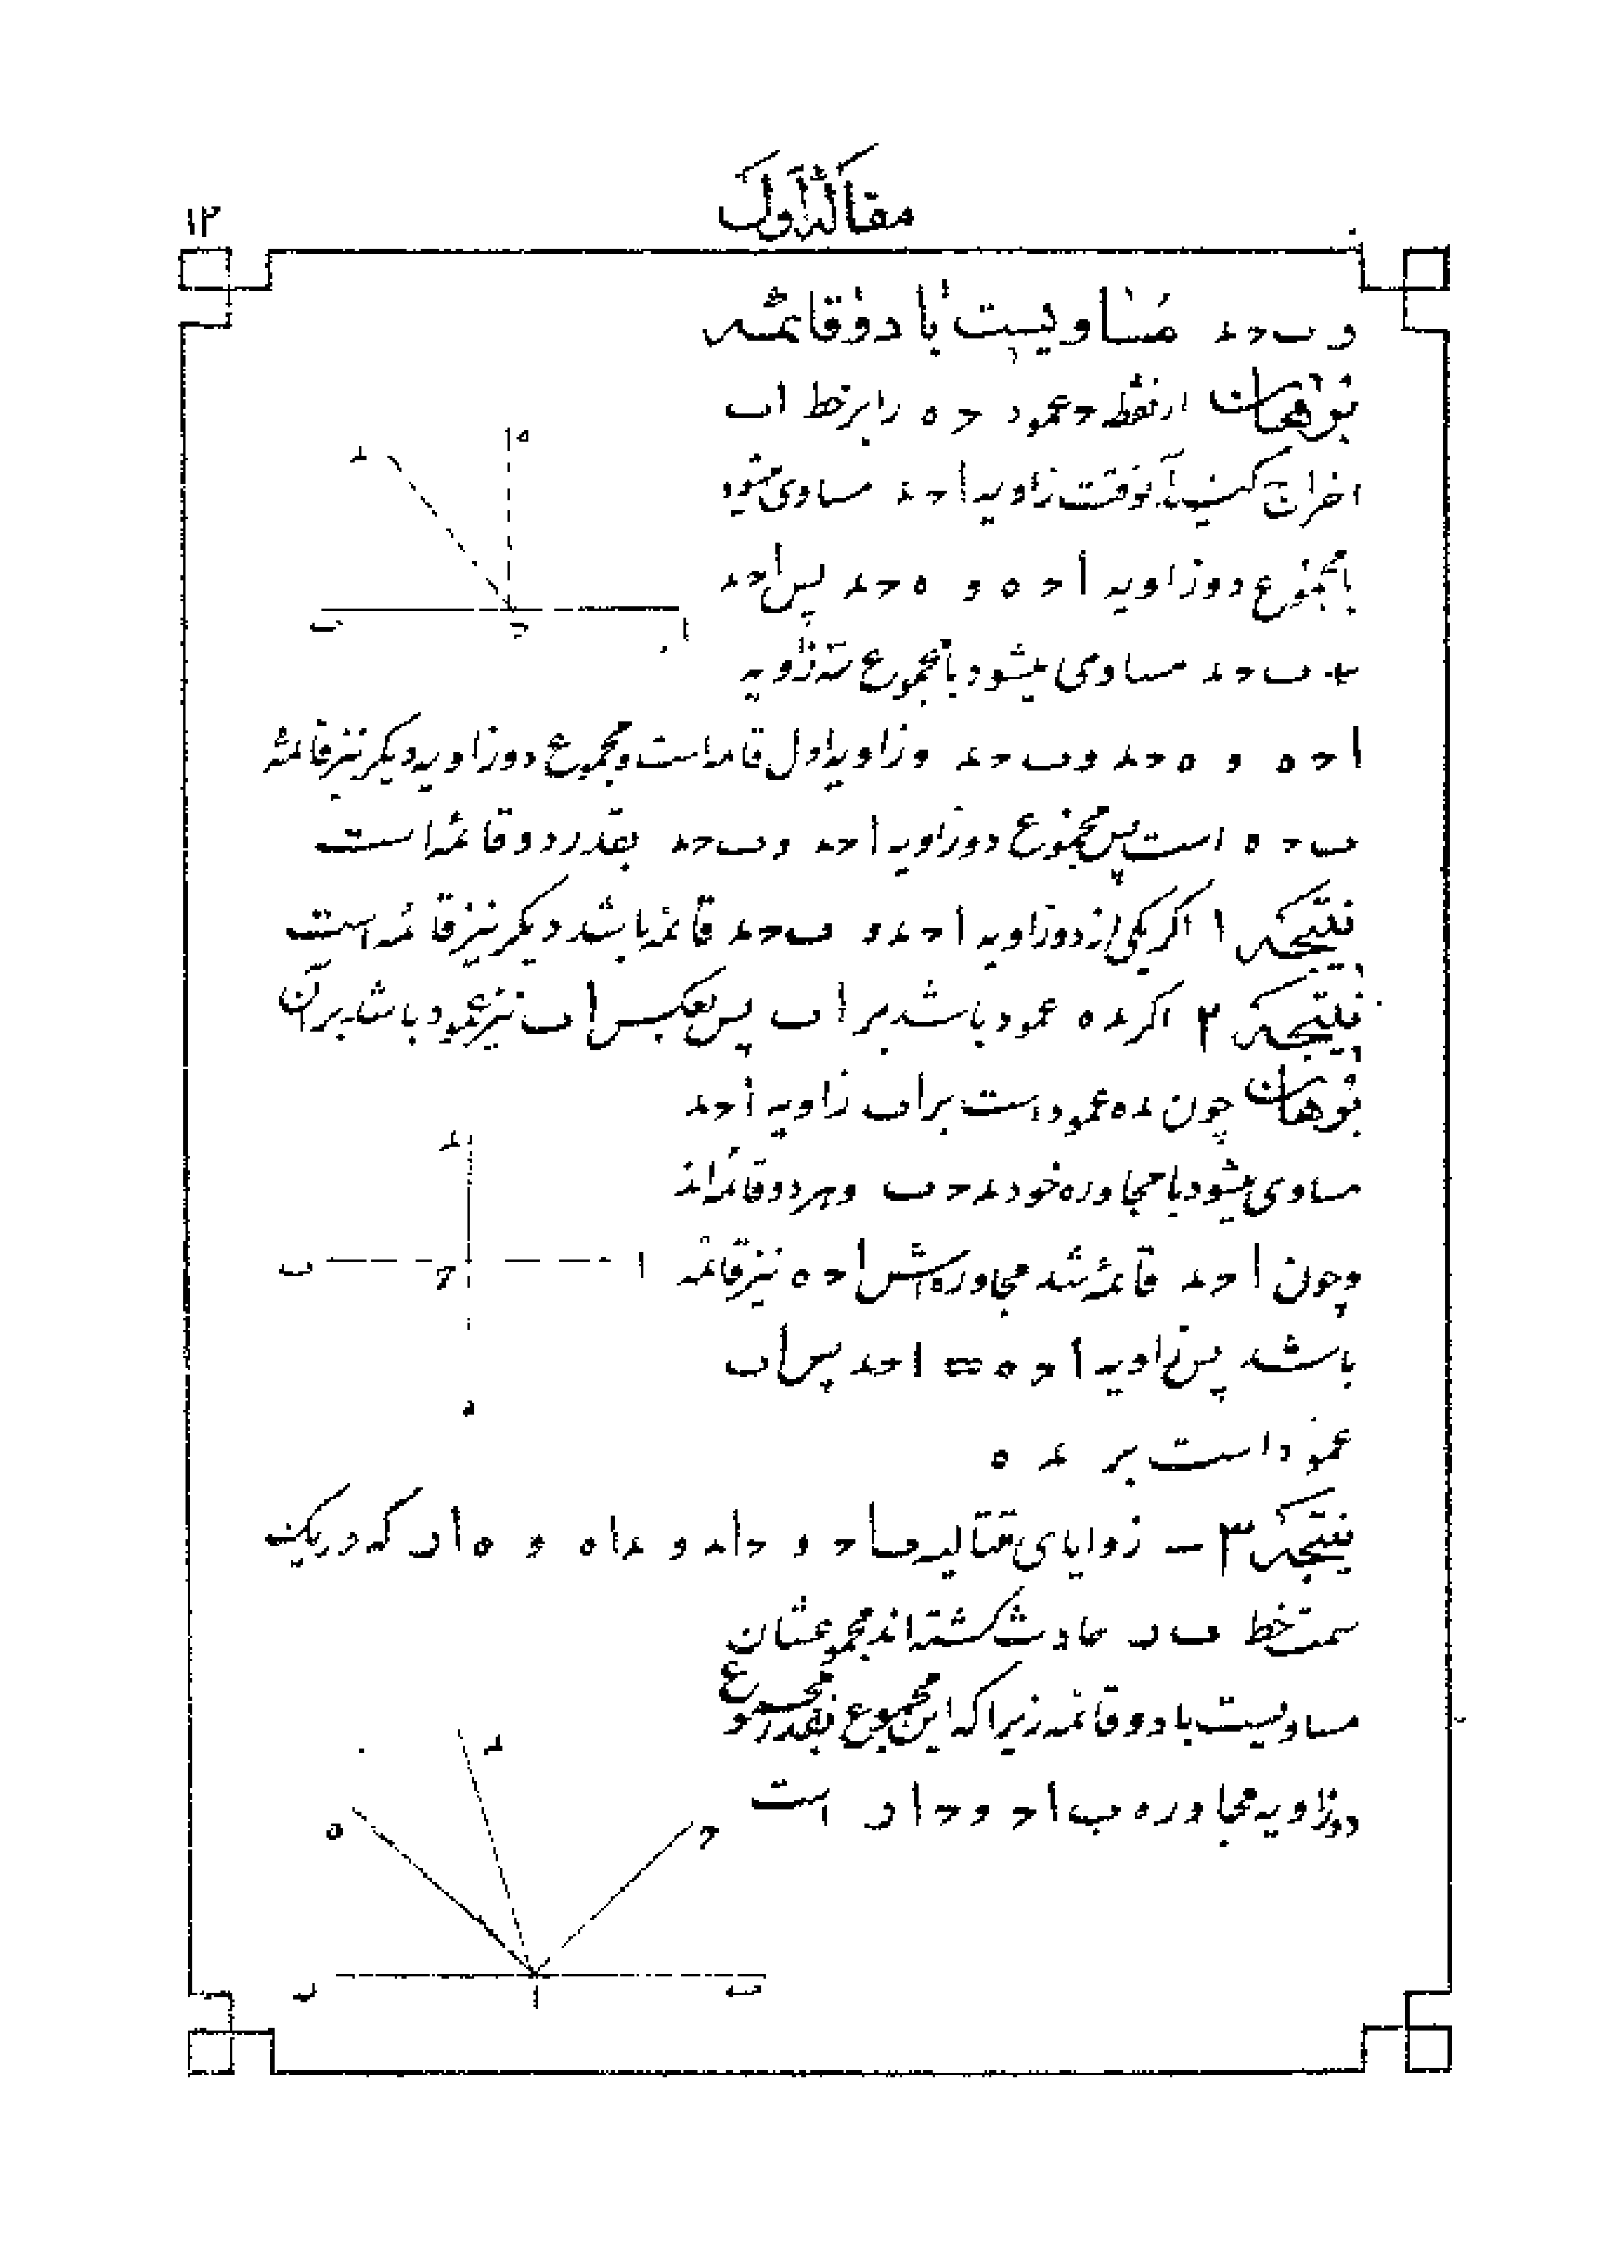 مقاله اول
۱۲
و ب ح د مساویست با دو قائمه
برهان از نقطه ح عمود ح ه را بر خط ا ب
اخراج کنیم آنوقت زاویه ا ح د مساوی میشود
با مجموع دو زاویه ا ح ه و ه ح د پس ا ح د
+ ب ح د مساوی میشود با مجموع سه زاویه
ا ح ه و ه ح د و ب ح د و زاویه اول قائمه است و مجموع دو زاویه دیکر نیز قائمه
ب ح ه است پس مجموع دو زاویه ا ح د و ب ح د بقدر دو قائمه است
نتیجه ۱ اکر یکی از دو زاویه ا ح د و ب ح د قائمه باشد دیکر نیز قائمه است
نتیجه ۲ اکر د ه عمود باشد بر ا ب پس بعکس ا ب نیز عمود باشد بر آن
برهان چون د ه عمود است بر ا ب زاویه ا ح د
مساوی میشود با مجاوره خود د ح ب و هر دو قائمه اند
و چون ا ح د قائمه شد مجاوره اش ا ح ه نیز قائمه
باشد پس زاویه ا ح ه = ا ح د پس ا ب
عمود است بر د ه
نتیجه ۳ – زوایای متتالیه ب ا ح و ح ا د و د ا ه و ه ا ر که در یک
سمت خط ب ر حادث کشته اند مجموعشان
مساویست با دو قائمه زیرا که این مجموع بقدر مجموع
دو زاویه مجاوره ب ا ح و ح ا ر است
د
ه
ب
ح
ا
د
ب
ح
ا
ه
د
ه
ح
ر
ا
ب